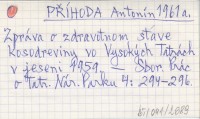 PŘÍHODA Antonín 1961a.
Zpráva o zdravotnom stave
kosodreviny vo Vysokých Tatrách
v jeseni 1959. — Sbor. Prác
o Tatr. Nár. Parku 4: 294-296.